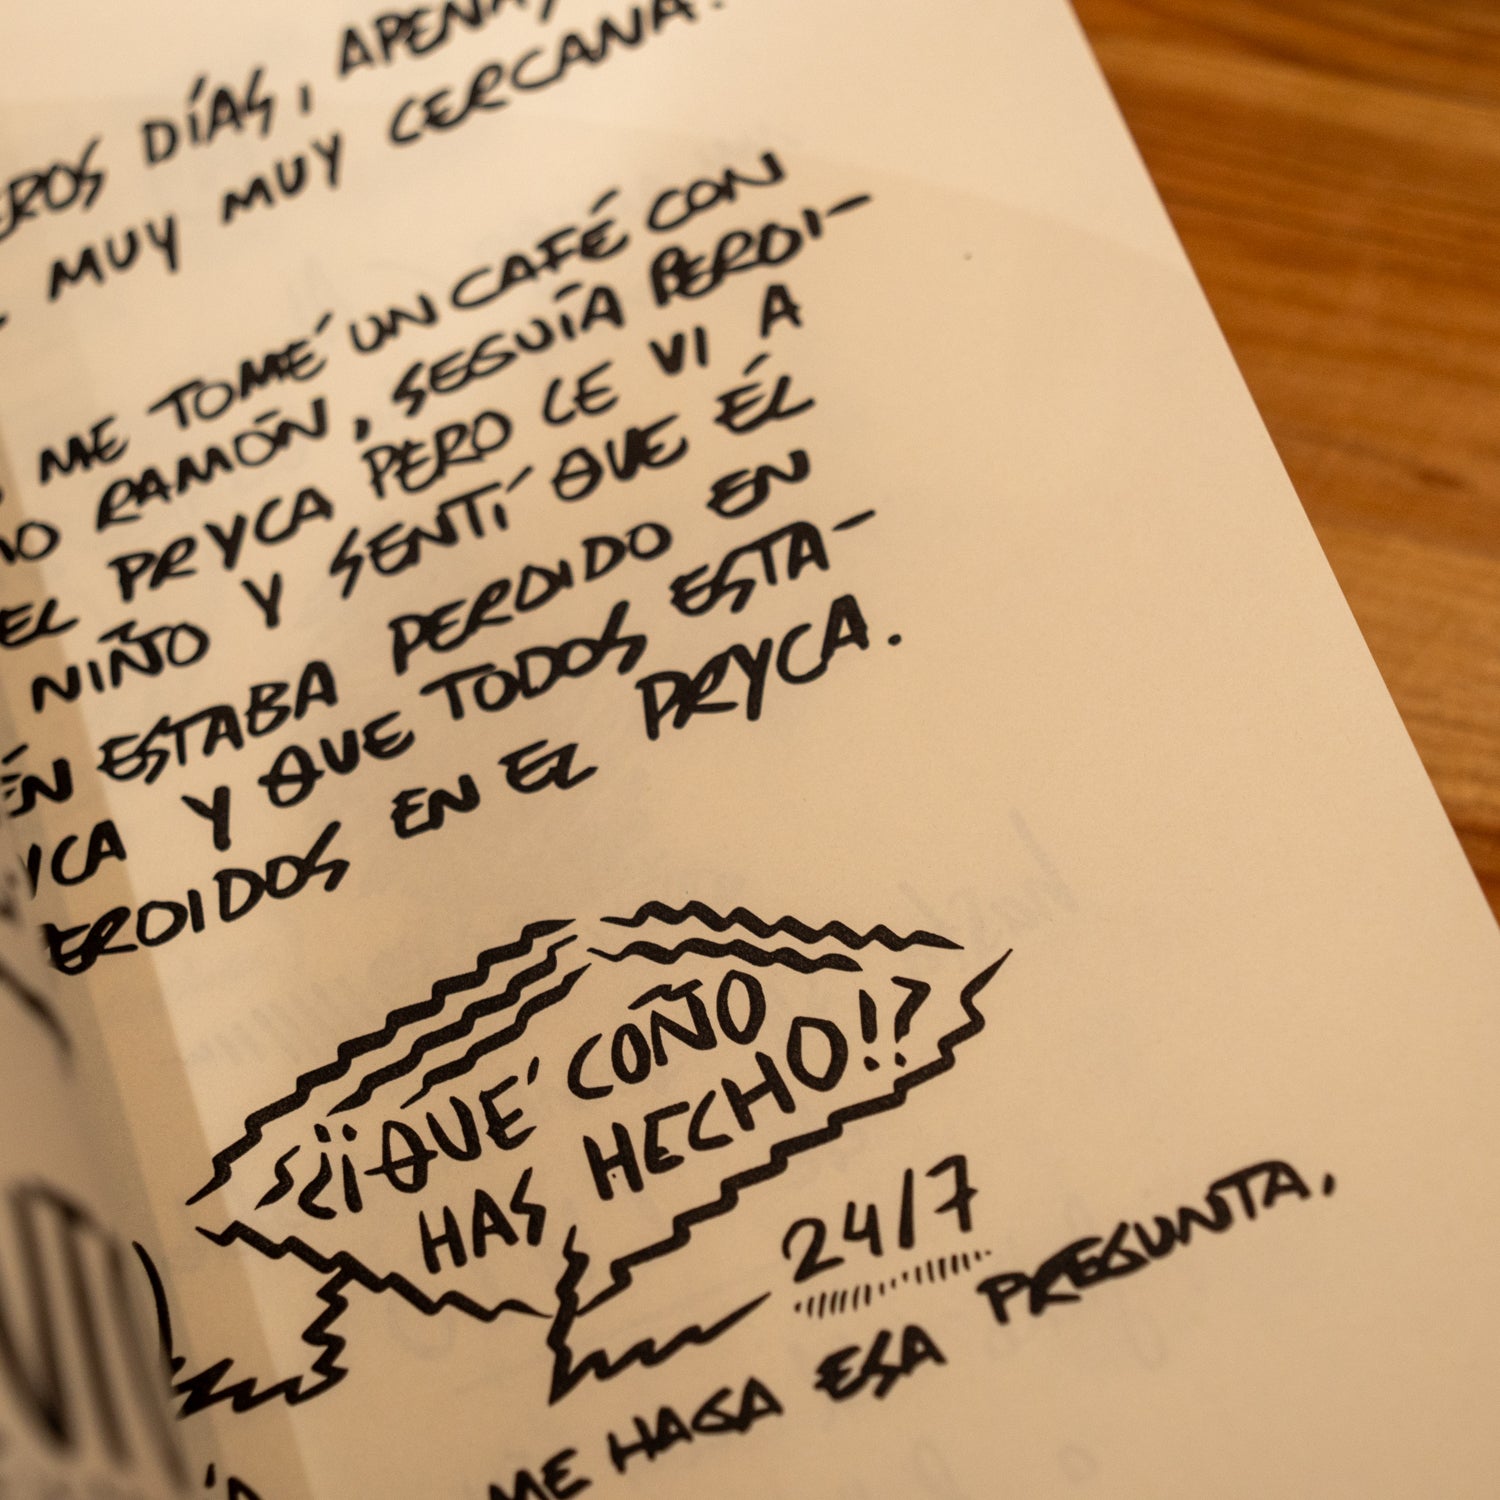 DÍAS, APENAS
MUY MUY CERCANA.
ME TOMÉ UN CAFÉ CON
RAMÓN, SEGUÍA PERDI-
EL PRYCA PERO LE VI A
NIÑO Y SENTÍ QUE ÉL
ÉN ESTABA PERDIDO EN
YCA Y QUE TODOS ESTA-
ERDIDOS EN EL PRYCA.
¿¡QUÉ COÑO
HAS HECHO!?
24/7
ME HAGA ESA PREGUNTA,